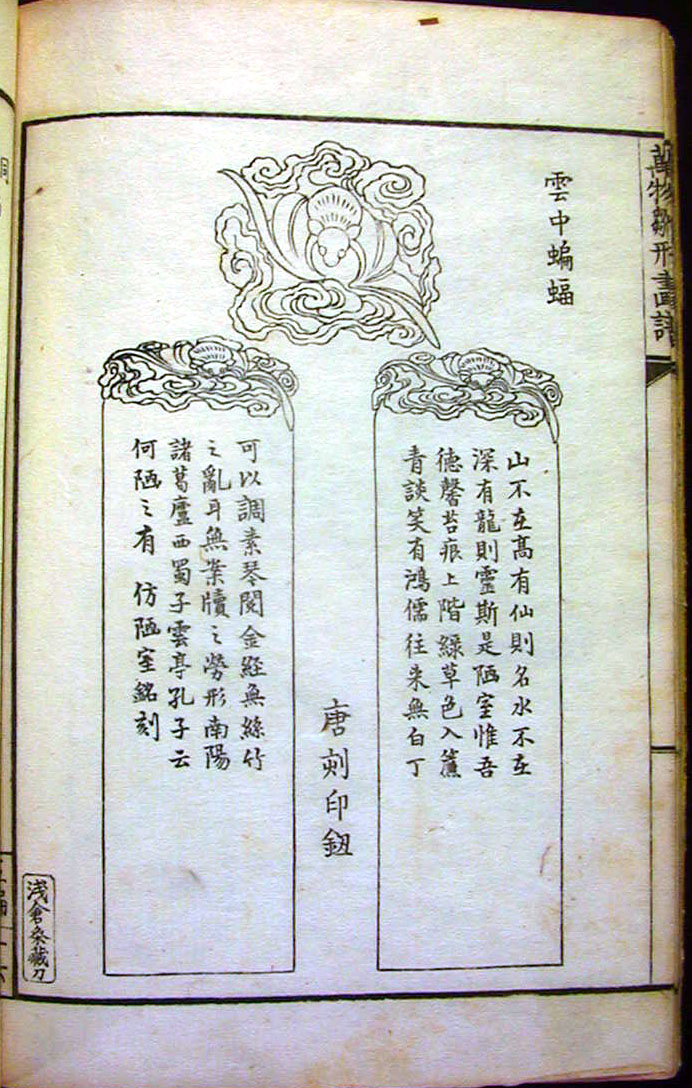 萬物雛形畫譜
雲中蝙蝠
山不在髙有仙則名水不在
深有龍則靈斯是陋室惟吾
德馨苔痕上階綠草色入簾
青談笑有鴻儒往来無白丁
唐刻印鈕
可以調素琴閲金經無絲竹
之亂耳無案牘之勞形南陽
諸葛廬西蜀子雲亭孔子云
何陋之有 仿陋室銘刻
浅倉粂藏刀